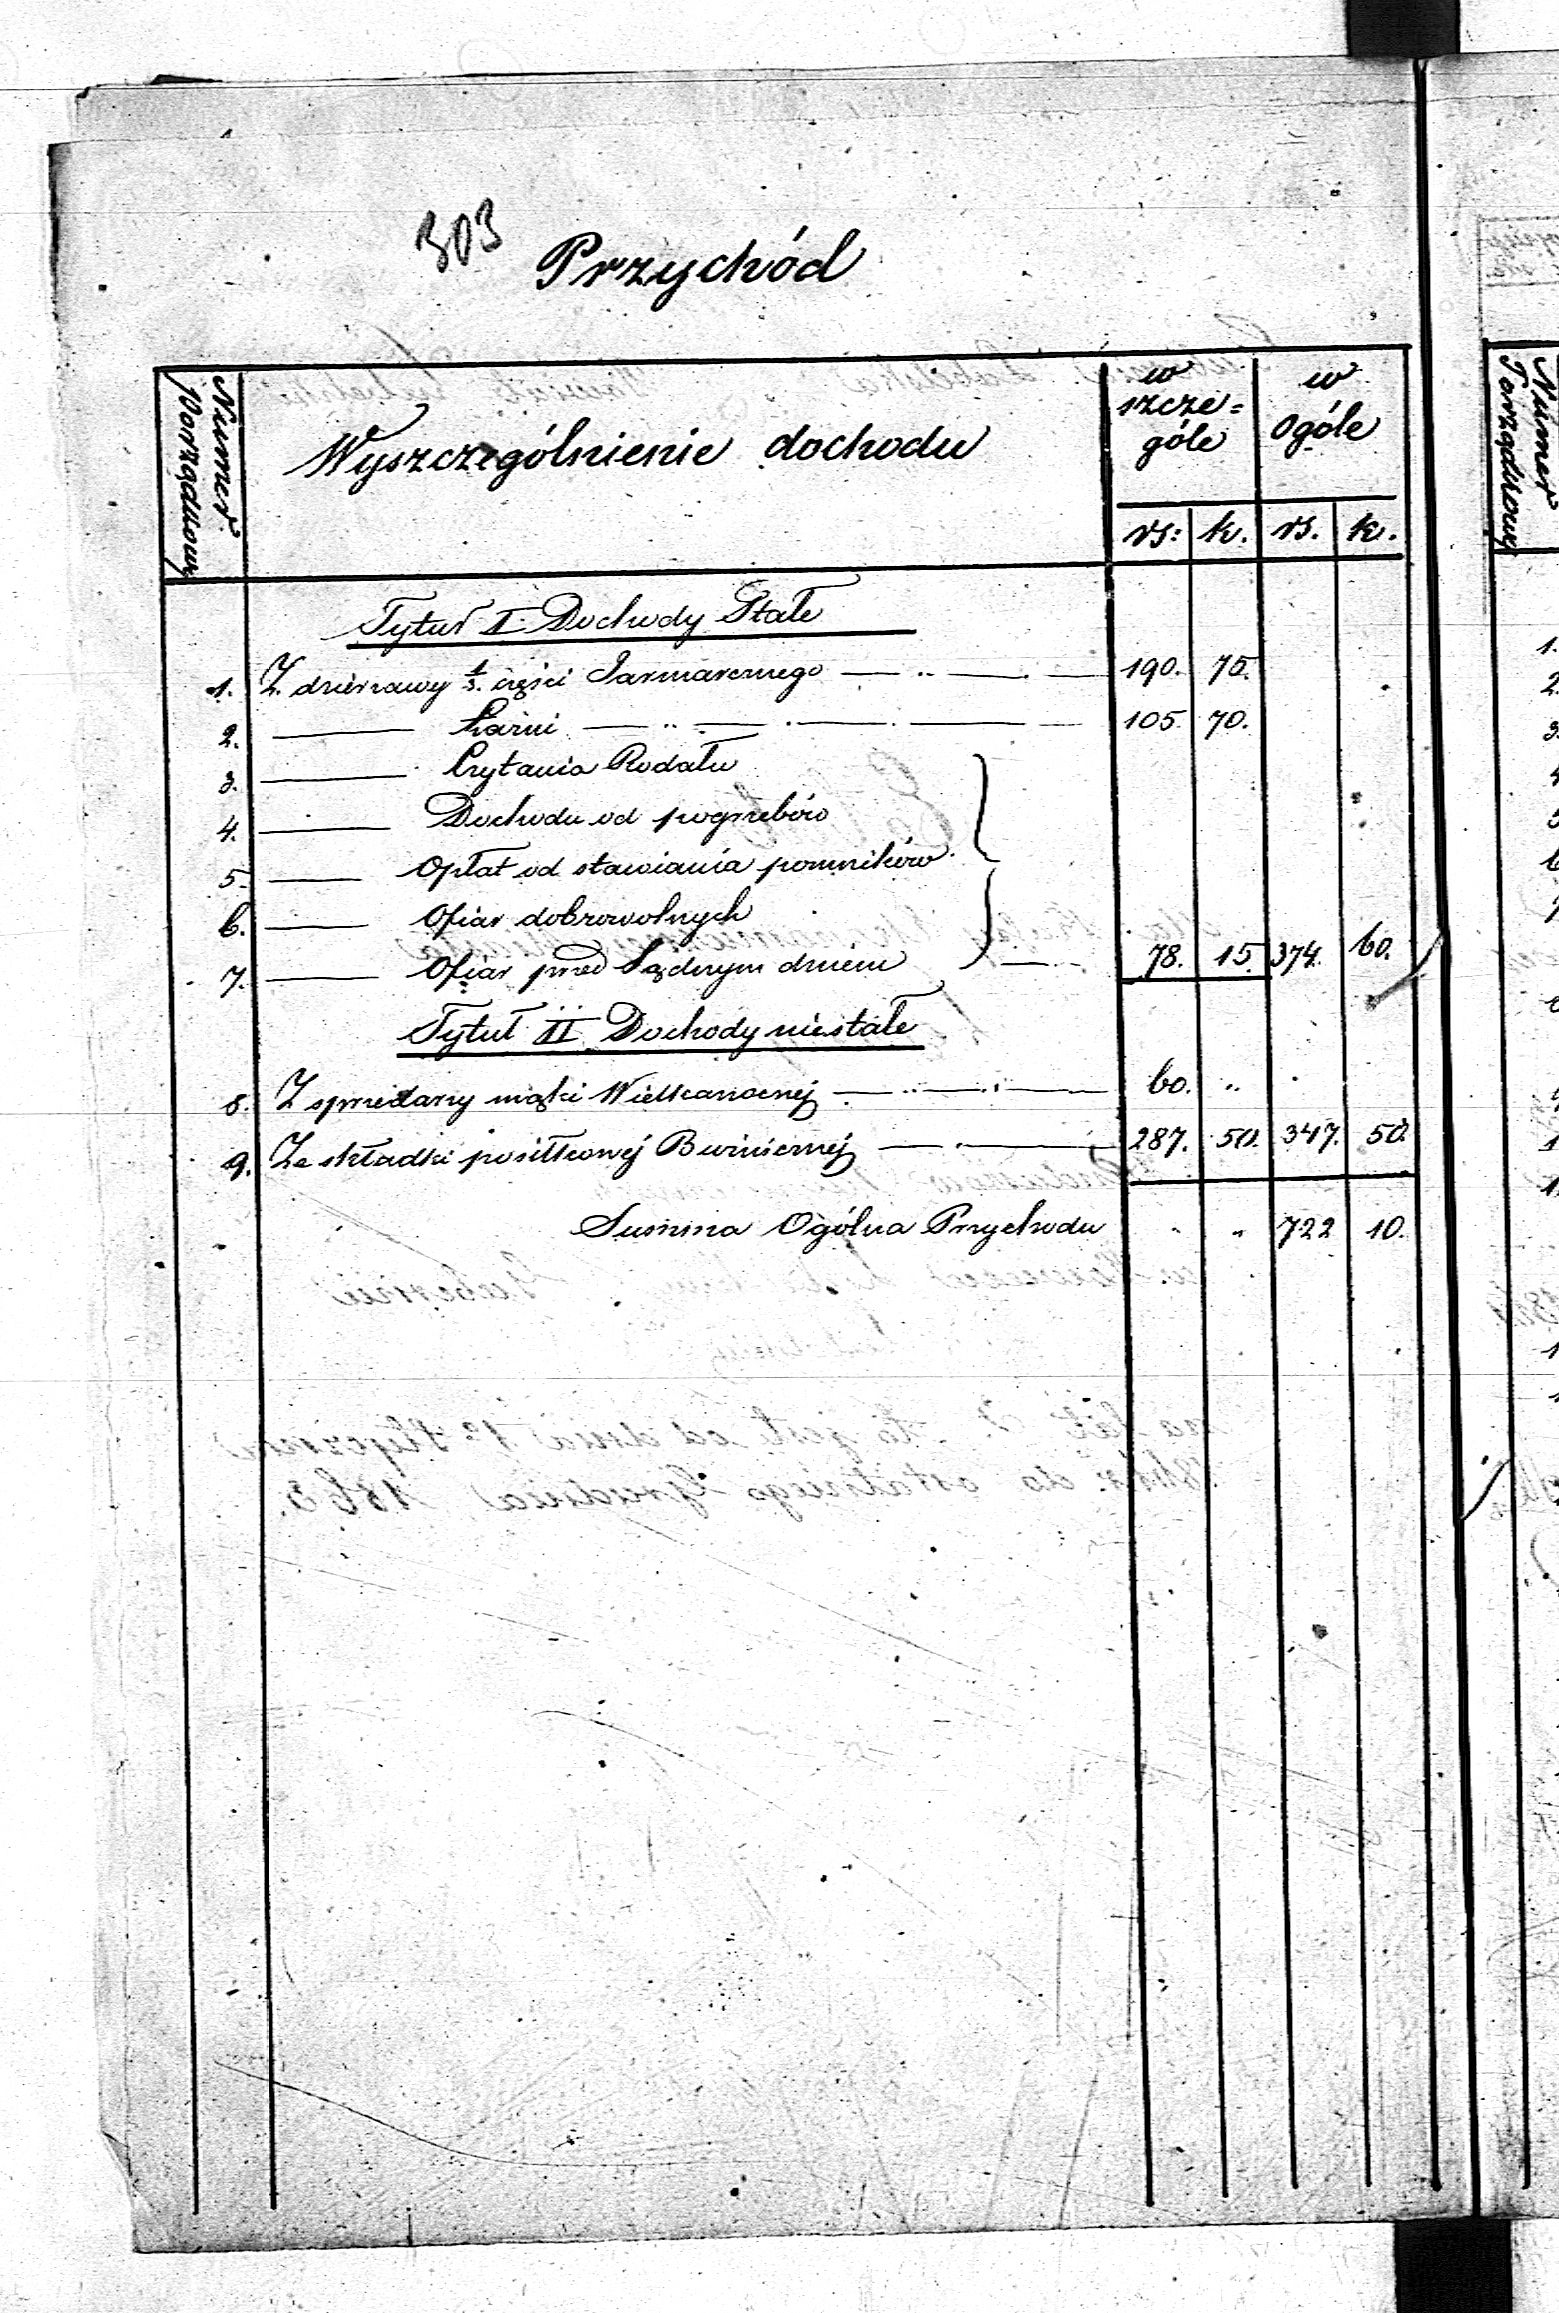 303
Przychód
Numer Porządkowy
Wyszczególnienie dochodu
w szcze= góle
w Ogóle
rs: k. rs. k.
Tytuł I Dochody Stałe
1. Z dzierżawy 1/3 części Jarmarcznego 190. 75.
2. Łaźni 105. 70.
3. Czytania Rodału
4. Dochodu od pogrzebów
5. Opłat od stawiania pomników
6. Ofiar dobrowolnych
7. Ofiar przed Sądnym dniem 78. 15. 374. 60.
Tytuł II Dochody niestałe
8. Z sprzedaży mąki Wielkanocnej 60. ..
9. Ze składki posiłkowej Bużnicznej 287. 50. 347. 50.
Summa Ogólna Przychodu " " 722 10.
Numer Porządkowy
1.
2.
3.